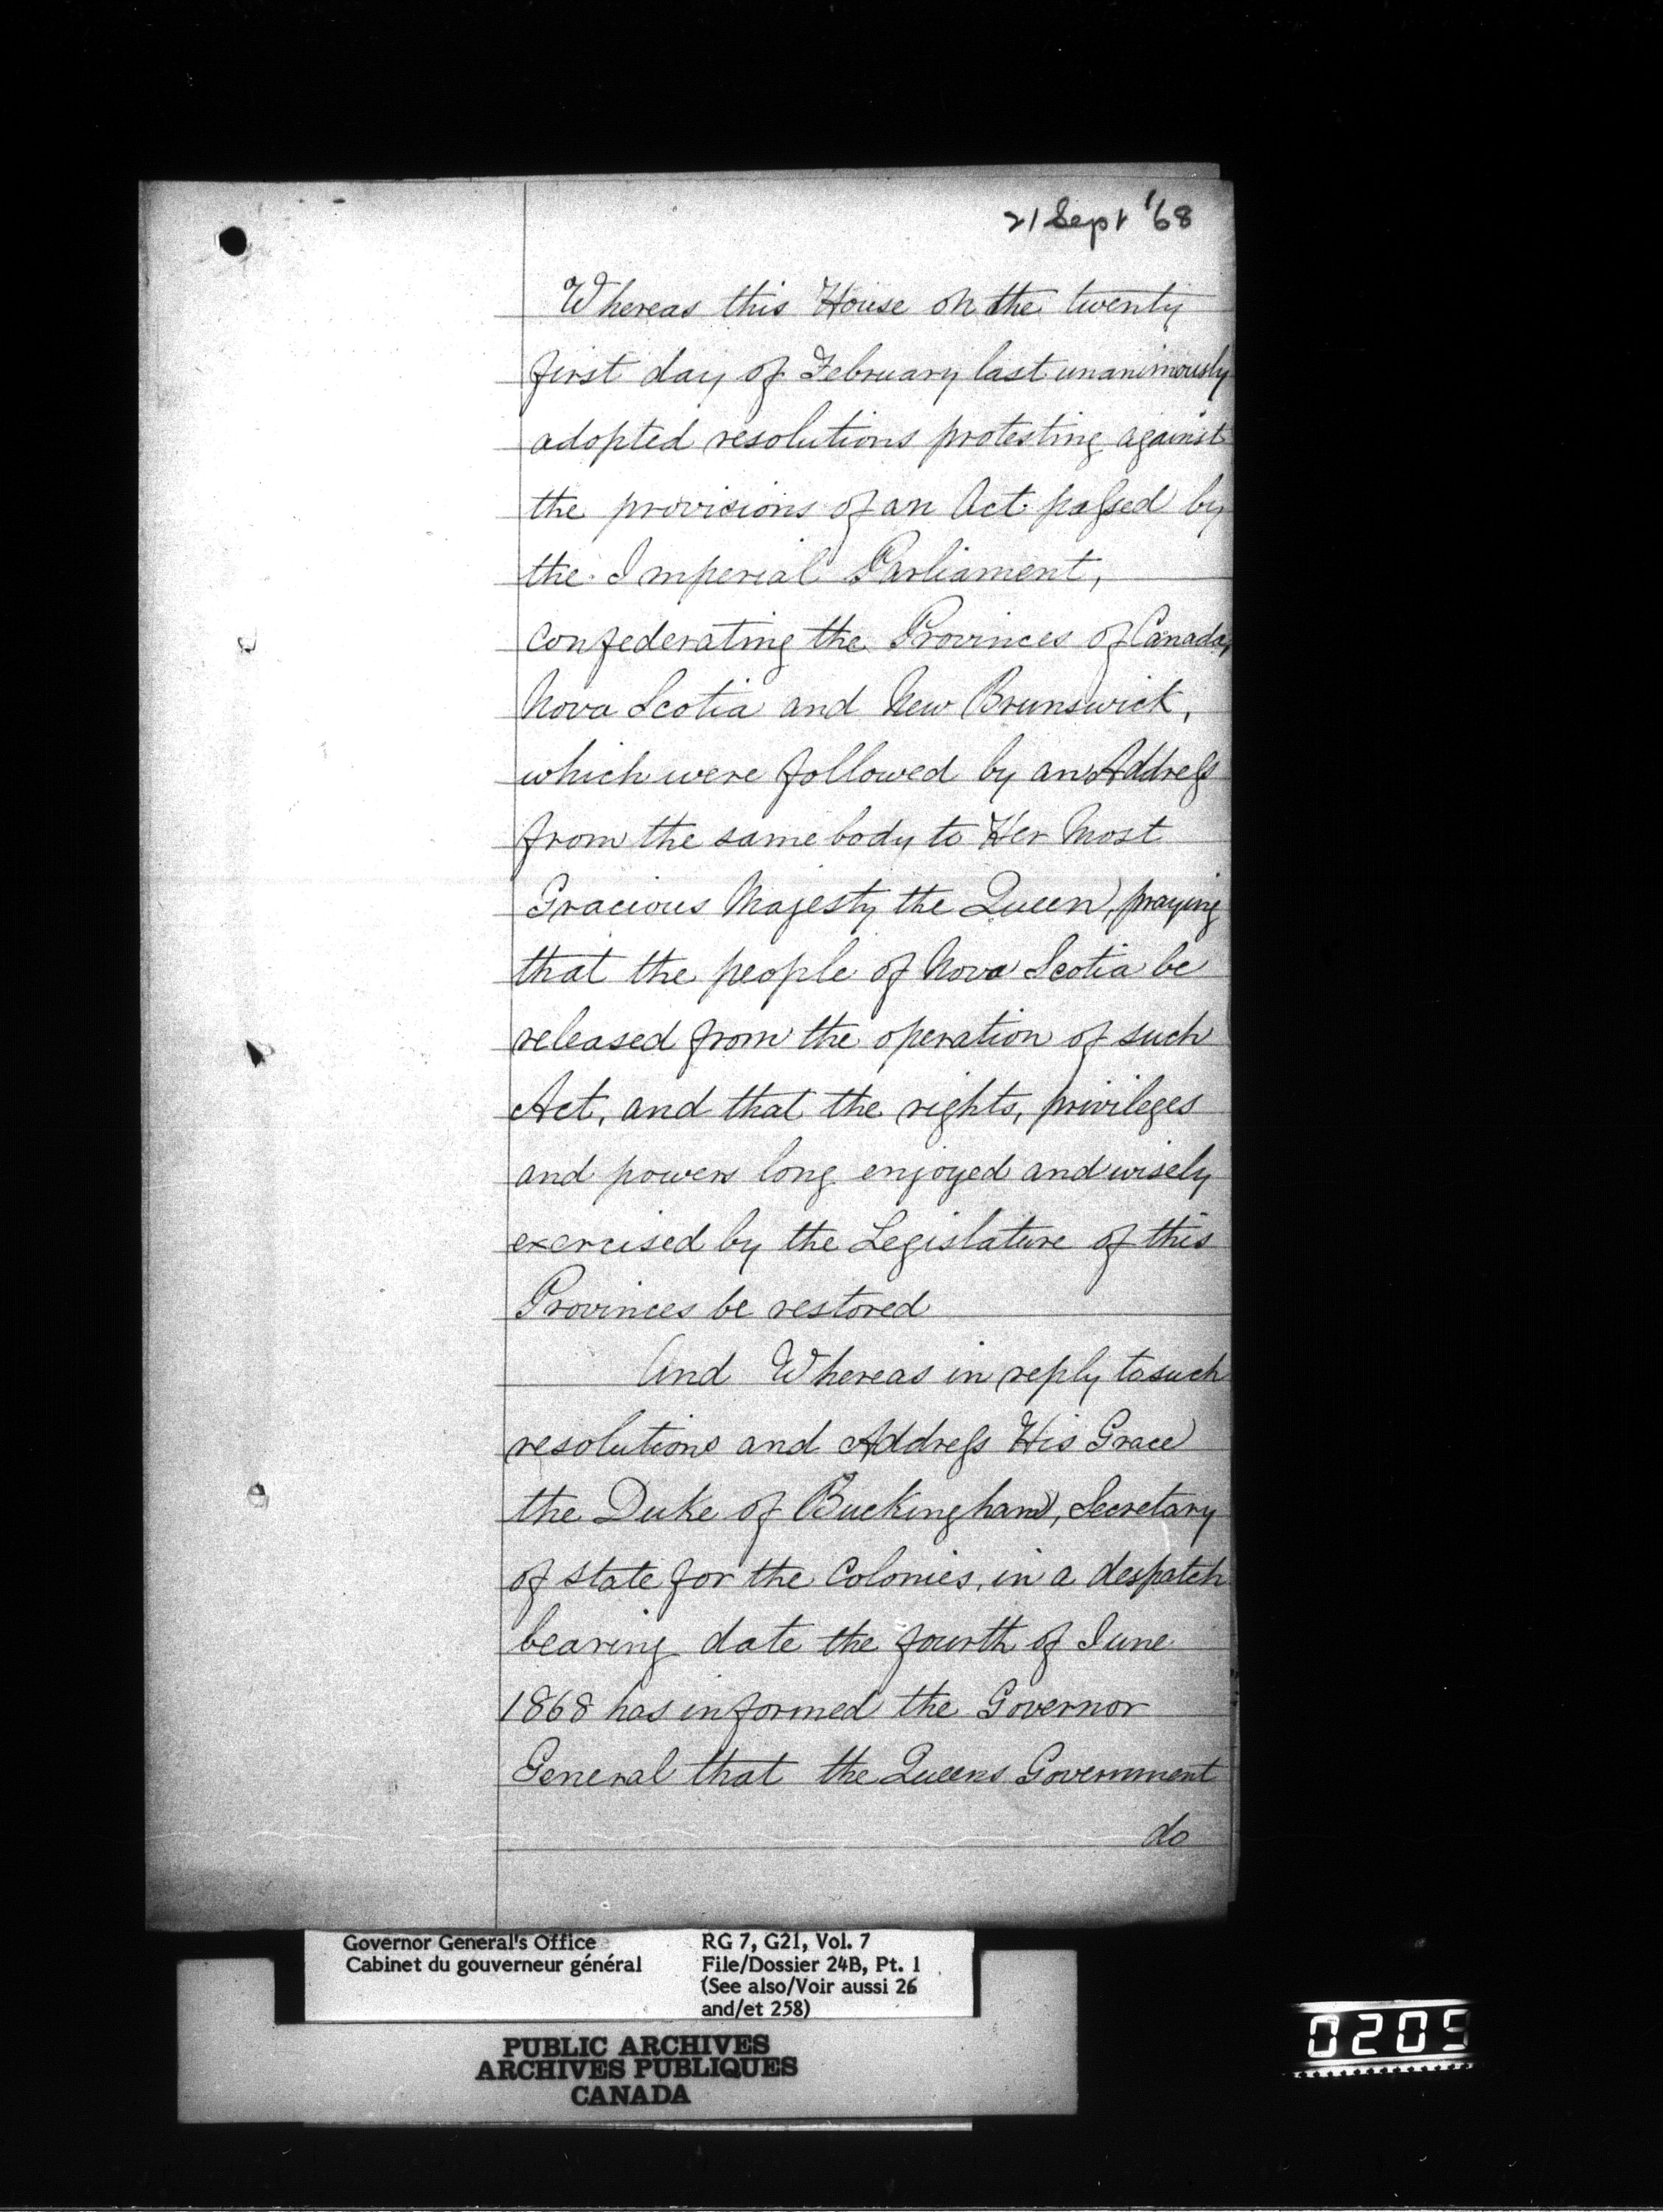 21 Sept '68
Whereas this House on the twenty
first day of February last unanimously
adopted resolutions protesting against
the provisions of an Act passed by
the Imperial Parliament,
confederating the Provinces of Canada,
Nova Scotia and New Brunswick,
which were followed by an Address
from the same body to Her Most
Gracious Majesty the Queen, praying
that the people of Nova Scotia be
released from the operation of such
Act, and that the rights, privileges
and powers long enjoyed and wisely
exercised by the Legislature of this
Provinces be restored
And Whereas in reply to such
resolutions and Address His Grace
the Duke of Buckingham, Secretary
of state for the Colonies, in a despatch
bearing date the fourth of June
1868 has informed the Governor
General that the Queens Government
do
Governor General's Office
Cabinet du gouverneur général
RG 7, G21, Vol. 7
File/Dossier 24B, Pt. 1
(See also/Voir aussi 26
and/et 258)
PUBLIC ARCHIVES
ARCHIVES PUBLIQUES
CANADA
0205